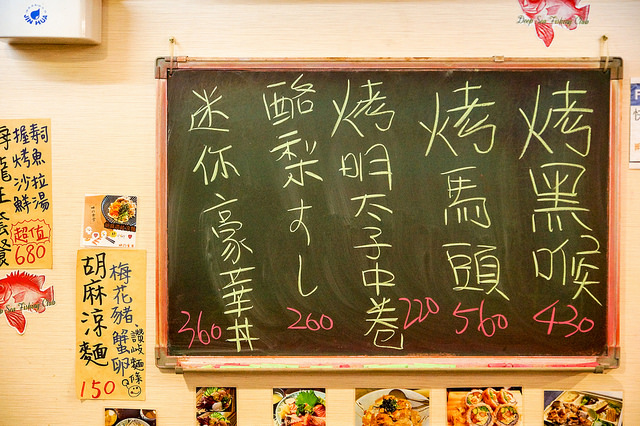 烤黑喉
430
烤馬頭
560
烤明太子中巻
220
酪梨すし
260
迷你豪華丼
360
握壽司
烤魚
沙拉
鮮湯
超值
680
梅花豬蟹卵
讚岐麵條
胡麻涼麵
150
JIN HUA
Deep Sea Fishing Club